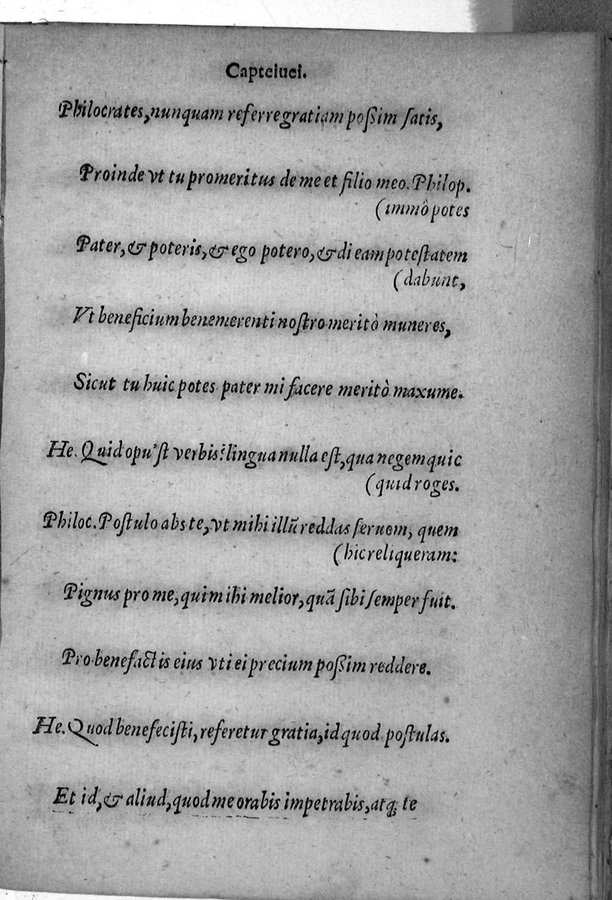 Capteiuei.
Philocrates, nunquam referre gratiam poſsim ſatis,
Proinde vt tu promeritus de me et filio meo. Philop.
(immò potes
Pater, & poteris, & ego potero, & di eam poteſtatem
(dabunt,
Vt beneficium benemerenti noſtro meritò muneres,
Sicut tu huic potes pater mi facere meritò maxume.
He. Quid opu'ſt verbis? lingua nulla eſt, qua negem quic
(quid roges.
Philoc. Poſtulo abs te, vt mihi illū reddas ſeruom, quem
(hic reliqueram:
Pignus pro me, qui mihi melior, quā ſibi ſemper fuit.
Pro benefactis eius vti ei precium poſsim reddere.
He. Quod benefeciſti, referetur gratia, id quod poſtulas.
Et id, & aliud, quod me orabis impetrabis, atq; te